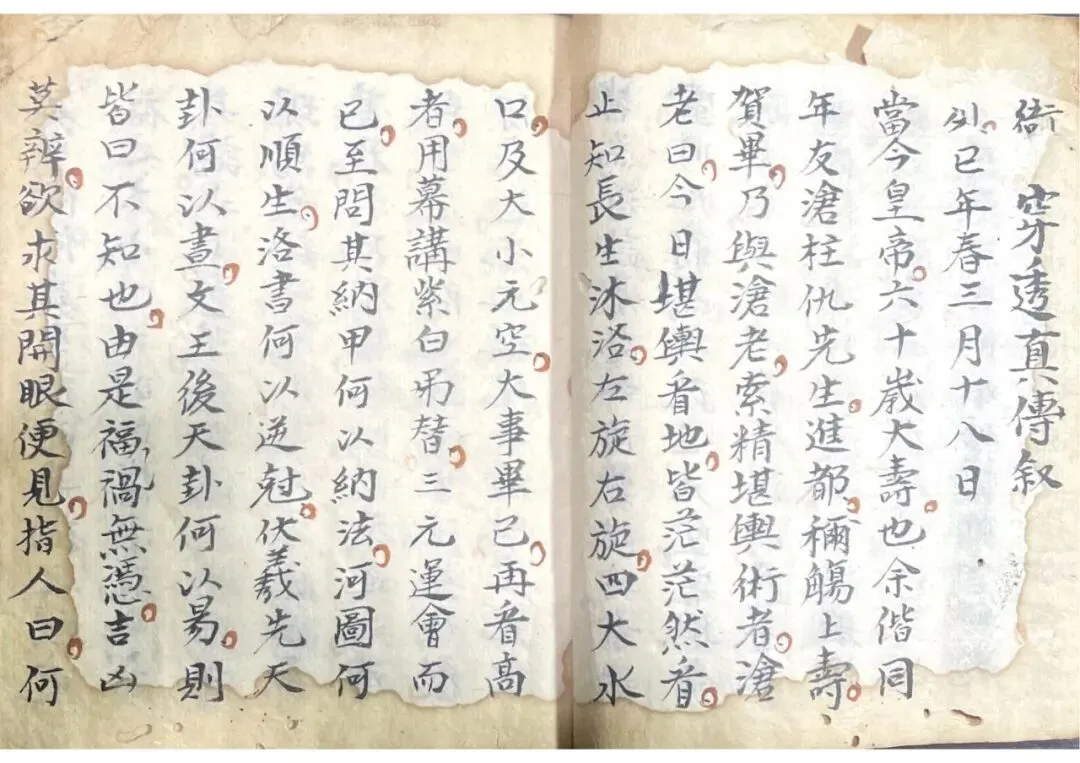 衙 穿透真傳叙
巳年春三月十八日
當今皇帝六十歲大壽也余偕同
年友滄柱仇先生進都稱觴上壽
賀畢乃與滄老索精堪輿術者滄
老曰今日堪輿看地皆茫茫然看
止知長生沐浴左旋右旋四大水
口及大小元空大事畢已再看高
者用幕講紫白吊替三元運會而
已至問其納甲何以納法河圖何
以順生洛書何以逆尅伏羲先天
卦何以畫文王後天卦何以易則
皆曰不知也由是福禍無憑吉凶
莫辨欲求其開眼便見指人曰何